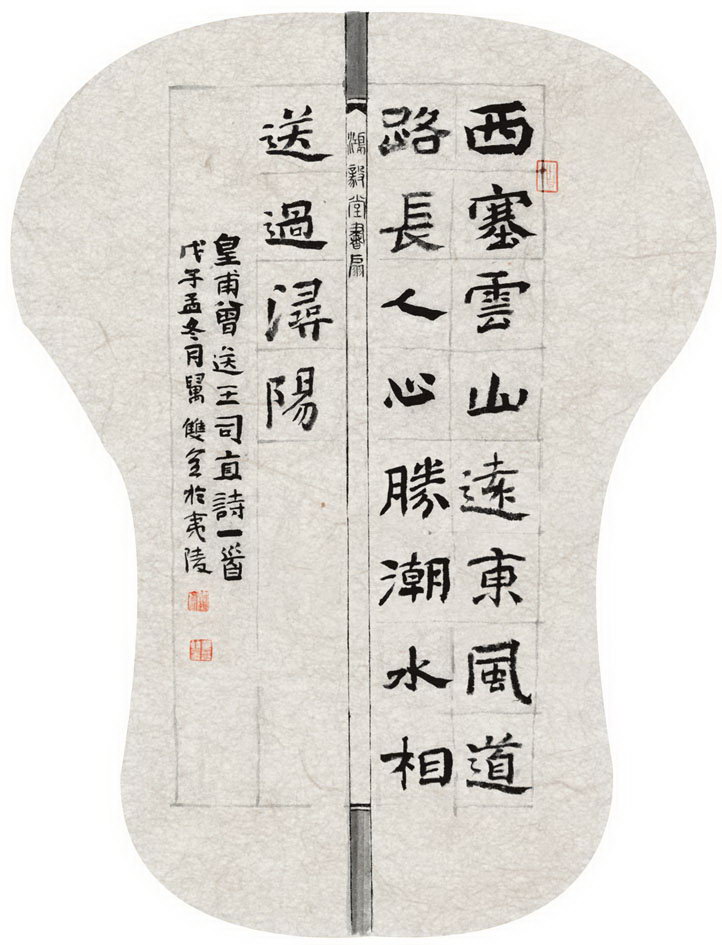 西塞雲山遠東風道
路長人心勝潮水相
鴻毅堂書扇
送過潯陽
皇甫曾送王司直詩一首
戊子孟冬月 雙全於夷陵